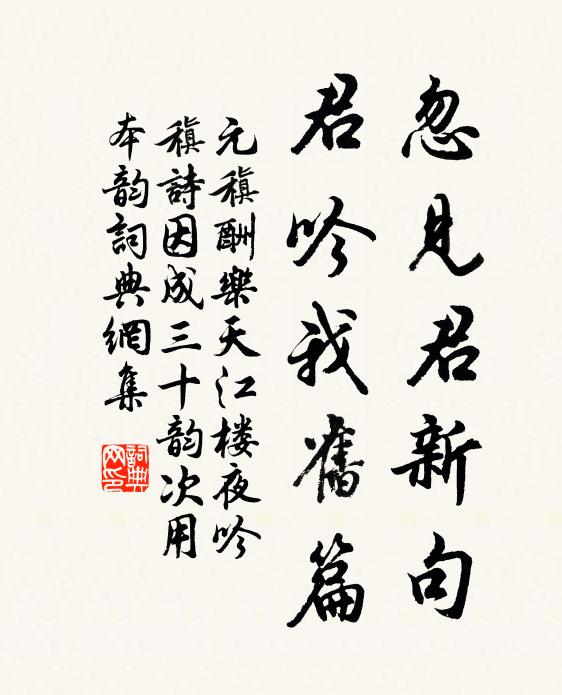 忽見君新句
君吟我舊篇
元稹酬樂天江楼夜吟
稹詩因成三十韵次用
本韵詞典網集
詞典
网印